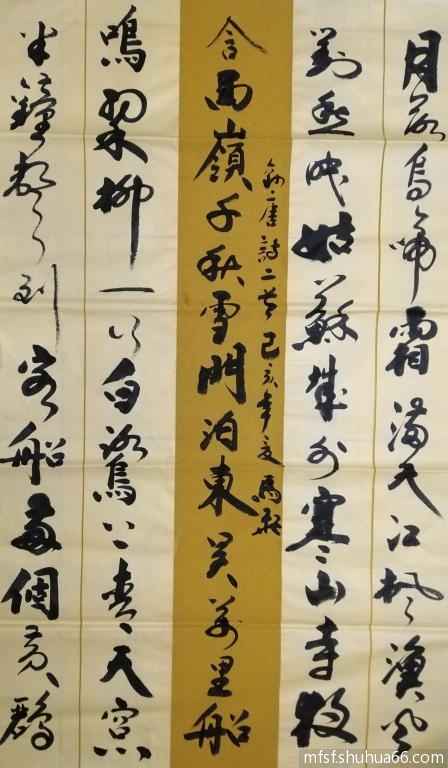 月落烏啼霜滿天江楓漁火
對愁眠姑蘇城外寒山寺夜
半鐘聲到客船兩個黃鸝
鳴翠柳一行白鷺上青天窗
含西嶺千秋雪門泊東吳萬里船
錄唐詩二首己亥年夏馬
mfsf.shuhua66.com